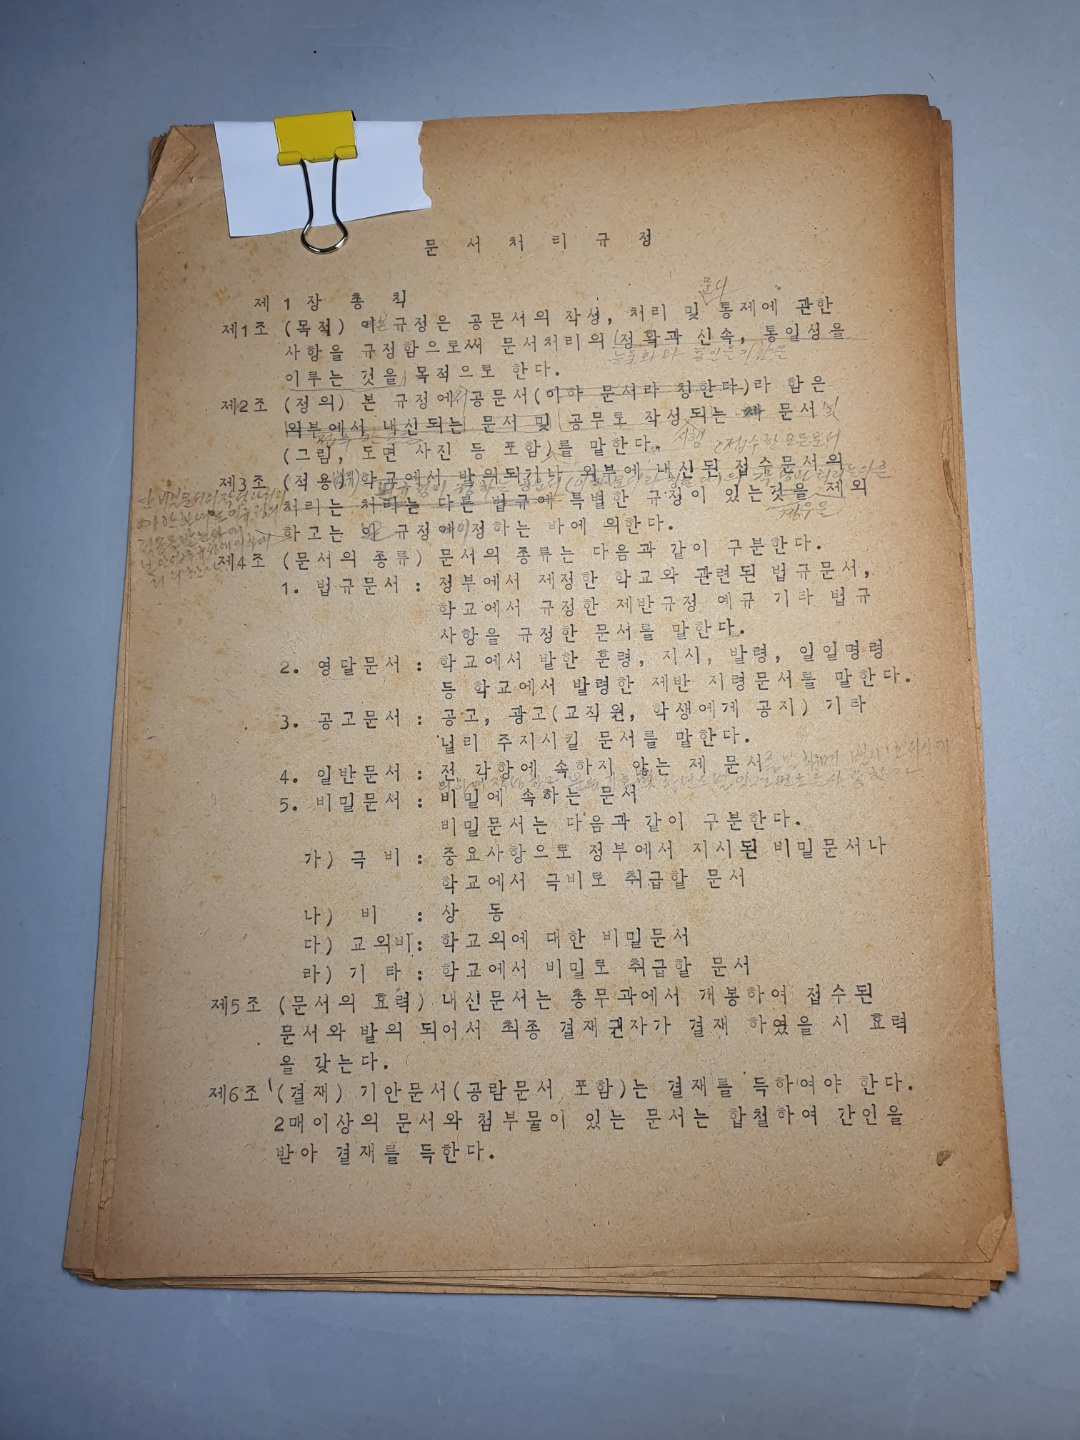 문 서 처 리 규 정
제 1 장 총 칙
문서
제1조 (목적) 이 규정은 공문서의 작성, 처리 및 통제에 관한
사항을 규정함으로써 문서처리의 (정확과 신속, 통일성을
이루는 것을) 목적으로 한다.
제2조 (정의) 본 규정에서 공문서(이하 문서라 칭한다)라 함은
외부에서 내신되는 문서 및 공무로 작성되는 문서 및
(그림, 도면 사진 등 포함)를 말한다. 시행 접수한 모든문서
제3조 (적용) 학교에서 발의되거나 외부에 내신된 접수문서의
처리는 처리는 다른 법규에 특별한 규정이 있는것을 제외
경우를
하고는 이 규정 정하는 바에 의한다.
제4조 (문서의 종류) 문서의 종류는 다음과 같이 구분한다.
1. 법규문서 : 정부에서 제정한 학교와 관련된 법규문서,
학교에서 규정한 제반규정 예규 기타 법규
사항을 규정한 문서를 말한다.
2. 영달문서 : 학교에서 발한 훈령, 지시, 발령, 일일명령
등 학교에서 발령한 제반 지령문서를 말한다.
3. 공고문서 : 공고, 광고(교직원, 학생에게 공지) 기타
널리 주지시킬 문서를 말한다.
4. 일반문서 : 전 각항에 속하지 않는 제 문서
5. 비밀문서 : 비밀에 속하는 문서
비밀문서는 다음과 같이 구분한다.
가) 극 비 : 중요사항으로 정부에서 지시된 비밀문서나
학교에서 극비로 취급할 문서
나) 비 : 상 동
다) 교외비: 학교외에 대한 비밀문서
라) 기 타 : 학교에서 비밀로 취급할 문서
제5조 (문서의 효력) 내신문서는 총무과에서 개봉하여 접수된
문서와 발의 되어서 최종 결재권자가 결재 하였을 시 효력
을 갖는다.
제6조 (결재) 기안문서(공람문서 포함)는 결재를 득하여야 한다.
2매이상의 문서와 첨부물이 있는 문서는 합철하여 간인을
받아 결재를 득한다.